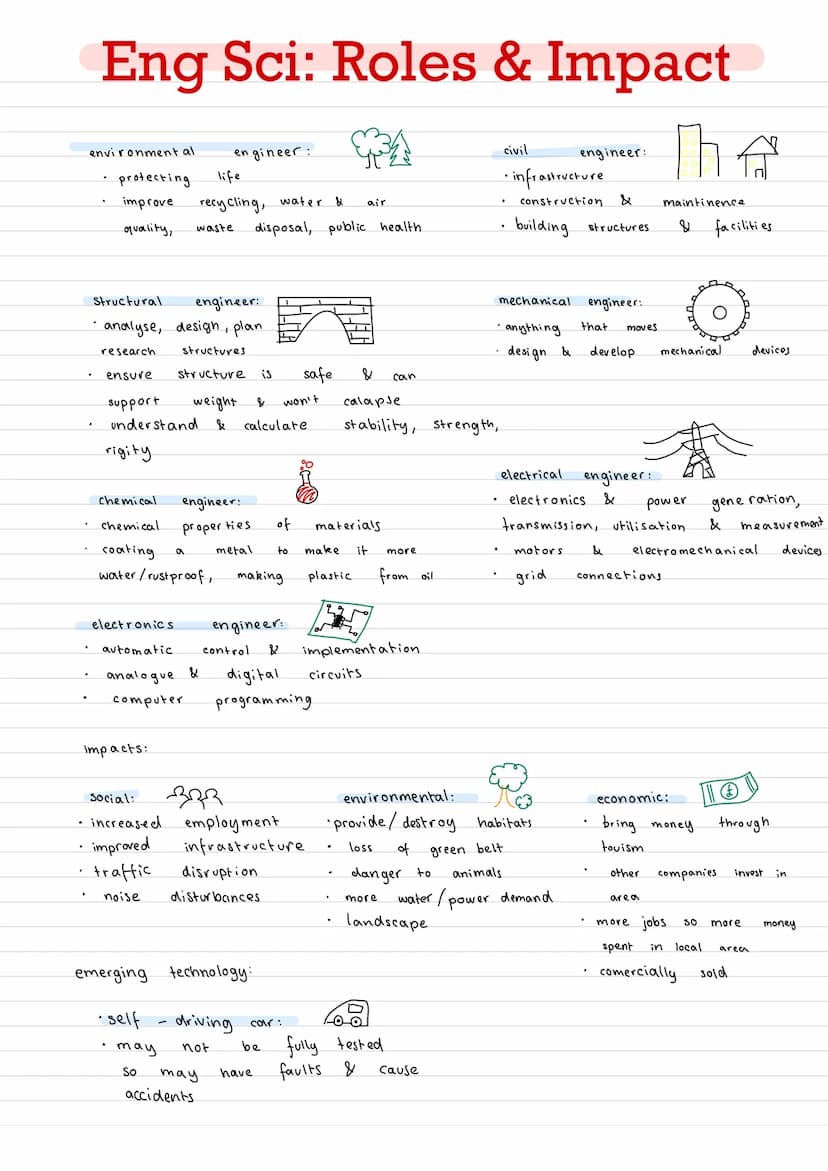 Eng Sci: Roles & Impact
environmental engineer:
· protecting life
· improve recycling, water & air
quality, waste disposal, public health
civil engineer:
· infrastructure
· construction & maintinence
· building structures & facilities
structural engineer:
· analyse, design, plan
research structures
· ensure structure is safe & can
support weight & won't calapse
· understand & calculate stability, strength,
rigity
mechanical engineer:
· anything that moves
· design & develop mechanical devices
chemical engineer:
· chemical properties of materials
· coating a metal to make it more
water/rustproof, making plastic from oil
electrical engineer:
· electronics & power generation,
transmission, utilisation & measurement
· motors & electromechanical devices
· grid connections
electronics engineer:
· automatic control & implementation
· analogue & digital circuits
· computer programming
impacts:
social:
· increased employment
· improved infrastructure
· traffic disruption
· noise disturbances
environmental:
· provide/destroy habitats
· loss of green belt
· danger to animals
· more water/power demand
· landscape
economic:
£
· bring money through
touism
· other companies invest in
area
· more jobs so more money
spent in local area
· comercially sold
emerging technology:
· self - driving car:
· may not be fully tested
so may have faults & cause
accidents